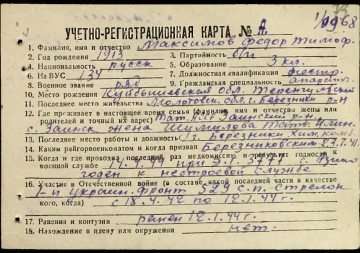 1/9968
УЧЕТНО-РЕГИСТРАЦИОННАЯ КАРТА № А
1. Фамилия, имя и отчество Максимов Федор Тимоф.
2. Год рождения 1913 3. Партийность б/п
4. Национальность русск 5. Образование 3 кл.
6. На ВУС 134 7. Должностная квалификация
8. Военное звание ряд 9. Гражданская специальность
10. Место рождения Куйбышевской обл. Теренгульский
11. Последнее место жительства Молотовск. обл. г. Березники
12. Где проживает в настоящее время семья (фамилия, имя и отчество жены или родителей и точный их адрес) Тат. АССР Заинский р-н
с. Заинск жена Шумилова
13. Последнее место работы и должность Березники Хим. комб.
14. Каким райгорвоенкоматом и когда призван Березниковским 23.7.41.
15. Когда и где проходил, последн. раз медкомиссию и результат годности к военной службе
годен к нестроевой службе
16. Участие в Отечественной войне (в составе какой последней части в качестве кого, когда) 1-й Украин. фронт 329 с.п. Стрелок
с 18.4.42 по 12.1.44 г.
17. Ранения и контузии ранен 12.1.44 г.
18. Нахождение в плену или окружении нет